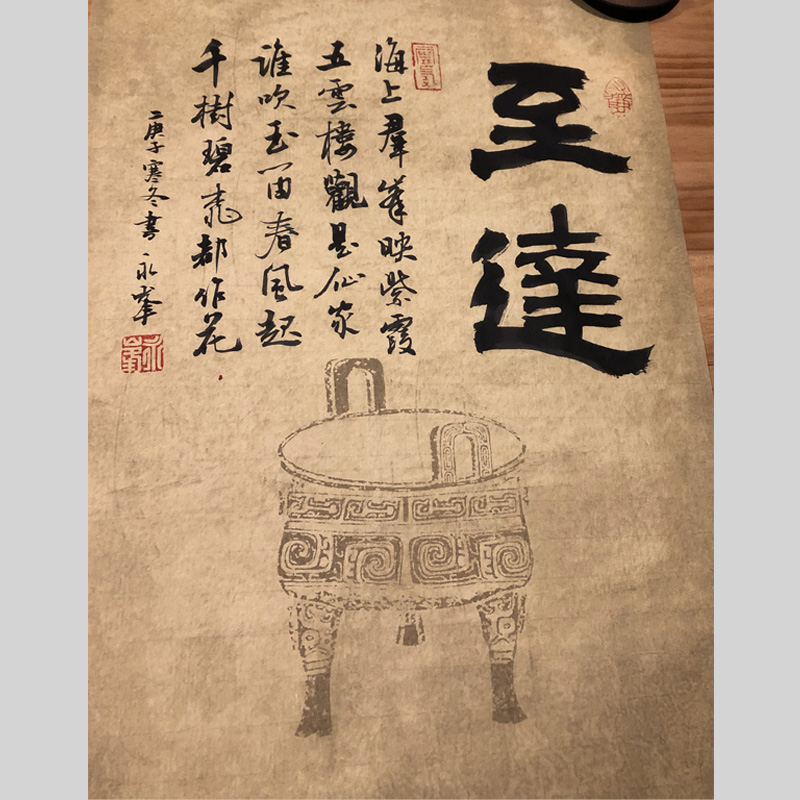 至達
海上羣峯映紫霞
五雲樓觀是仙家
誰吹玉笛春風起
千樹碧桃都作花
庚子寒冬書 永峯